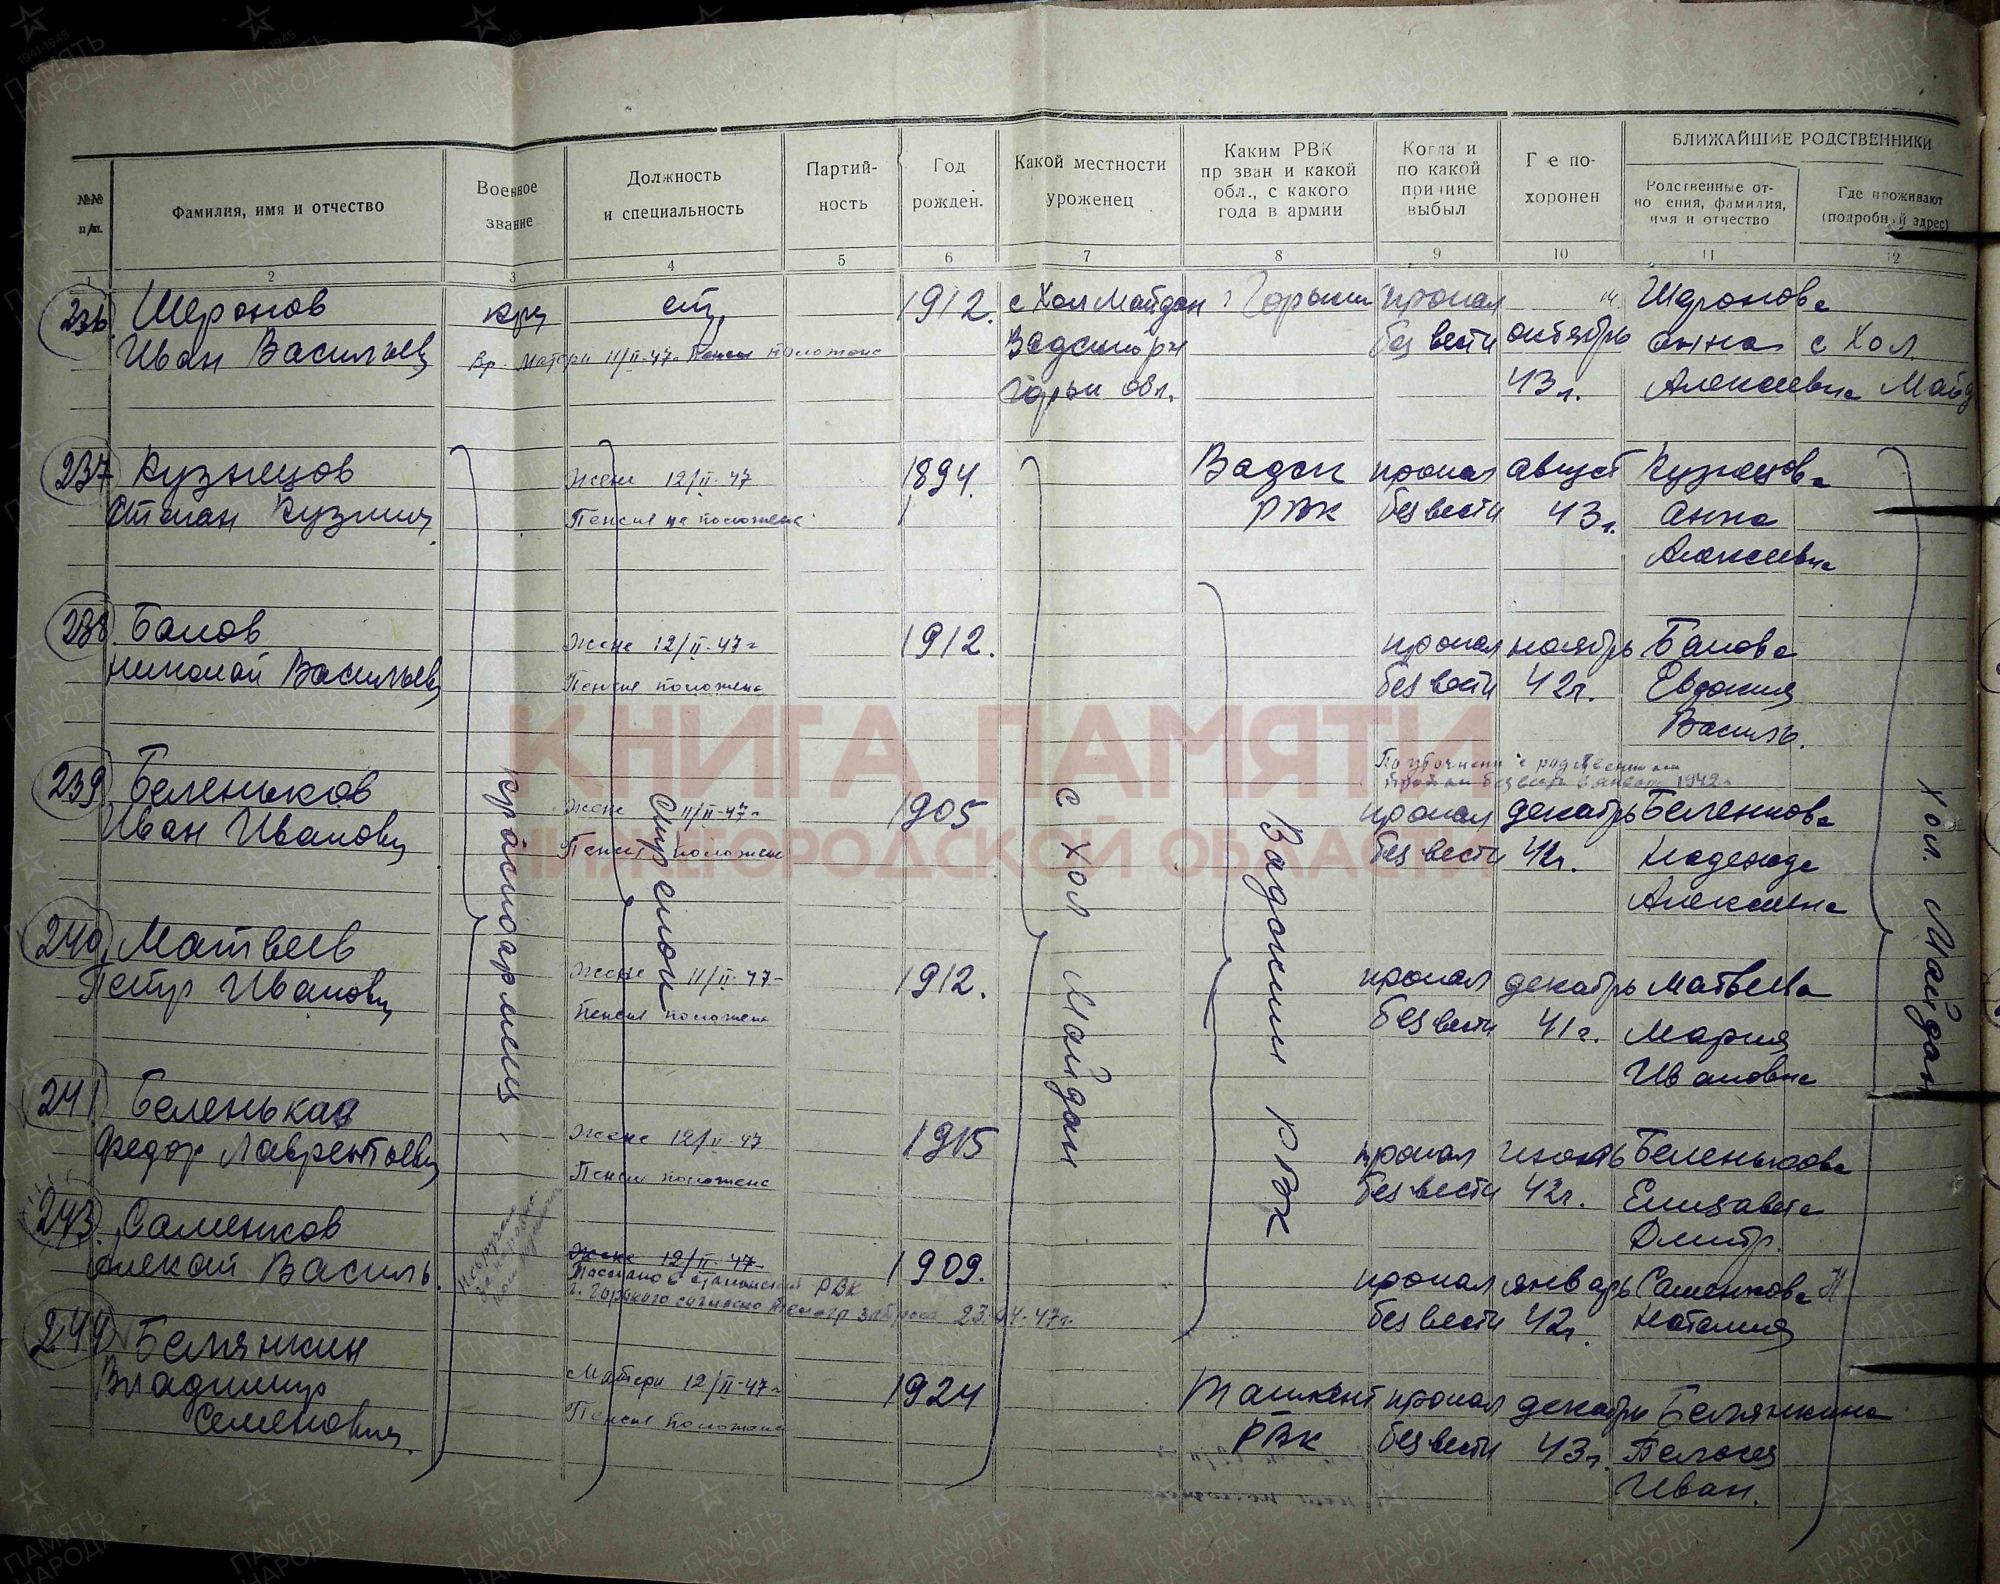 №№ п/п.
Фамилия, имя и отчество
Военное звание
Должность и специальность
Партий-ность
Год рожден.
Какой местности уроженец
Каким РВК пр зван и какой обл., с какого года в армии
Когда и по какой причине выбыл
Где по-хоронен
БЛИЖАЙШИЕ РОДСТВЕННИКИ
Родственные от-но ения, фамилия, имя и отчество
Где проживают (подробный адрес)
1 2 3 4 5 6 7 8 9 10 11 12
236. Шеронов 1912. с Хол Майдан пропал Шеронова
Иван Васильев без вести октябрь Анна с Хол
Горьк обл. 43 г. Алексеевна Майд
237 Кузнецов Жене 12/II-47 1894. Вадск пропал август Кузнецова
Степан Кузмич. Пенсия не положена РВК без вести 43 г. Анна
Алексеевна
238. Жене 12/II-47г 1912. пропал ноябрь
Николай Васильев Пенсия положена без вести 42г. Евдокия
Василь.
1942г
239 Беленьков Жене 11/II-47г 1905 пропал декабрь Беленкова
Иван Иванович Пенсия положена без вести 42г. Надежда
Алексеевна
240. Матвеев Жене 11/II-47г 1912. пропал декабрь Матвеева
Петр Иванович Пенсия положена без вести 41г. Мария
Ивановна
красноармеец
стрелок
с Хол Майдан
Вадским РВК
Хол. Майдан
241 Жене 12/II-47 1915 пропал июнь Беленькова
Федор Лаврентьевич Пенсия положена без вести 42г. Елизавета
Дмитр.
243. Саменков Жене 12/II-47 1909. пропал январь Саменкова Н
Алексей Василь. РВК без вести 42г. Наталия
г. Горького согласно запроса 23.04.47г.
244 Белянкин Матери 12/II-47г 1924 Ташкент пропал декабрь Белянкина
Владимир Пенсия положена РВК без вести 43г. Пелагея
Семенович. Иван.
КНИГА ПАМЯТИ
НИЖЕГОРОДСКОЙ ОБЛАСТИ
1941-1945
ПАМЯТЬ
НАРОДА